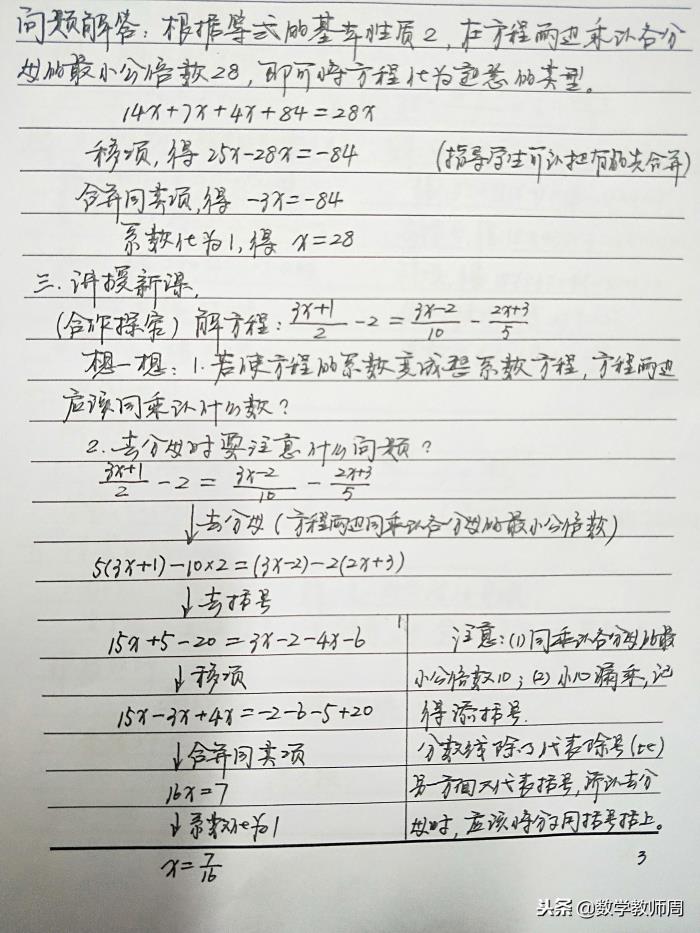 问题解答：根据等式的基本性质2，在方程两边乘以各分
母的最小公倍数28，即可将方程化为熟悉的类型。
14x+7x+4x+84=28x
移项，得 25x-28x=-84 (指导学生可以把有的先合并)
合并同类项，得 -3x=-84
系数化为1，得 x=28
三.讲授新课.
(合作探究) 解方程：(3x+1)/2 - 2 = (3x-2)/10 - (2x+3)/5
想一想：1.若使方程的系数变成整系数方程，方程两边
应该同乘以什么数？
2.去分母时要注意什么问题？
(3x+1)/2 - 2 = (3x-2)/10 - (2x+3)/5
↓去分母(方程两边同乘以各分母的最小公倍数)
5(3x+1)-10×2=(3x-2)-2(2x+3)
↓去括号
15x+5-20=3x-2-4x-6
↓移项
15x-3x+4x=-2-6-5+20
↓合并同类项
16x=7
↓系数化为1
x=7/16
注意：(1)同乘以各分母的最
小公倍数10；(2)小心漏乘，记
得添括号.
分数线除了代表除号(比)
另一方面又代表括号，所以去分
母时，应该将分子用括号括上。
3
头条 @数学教师周